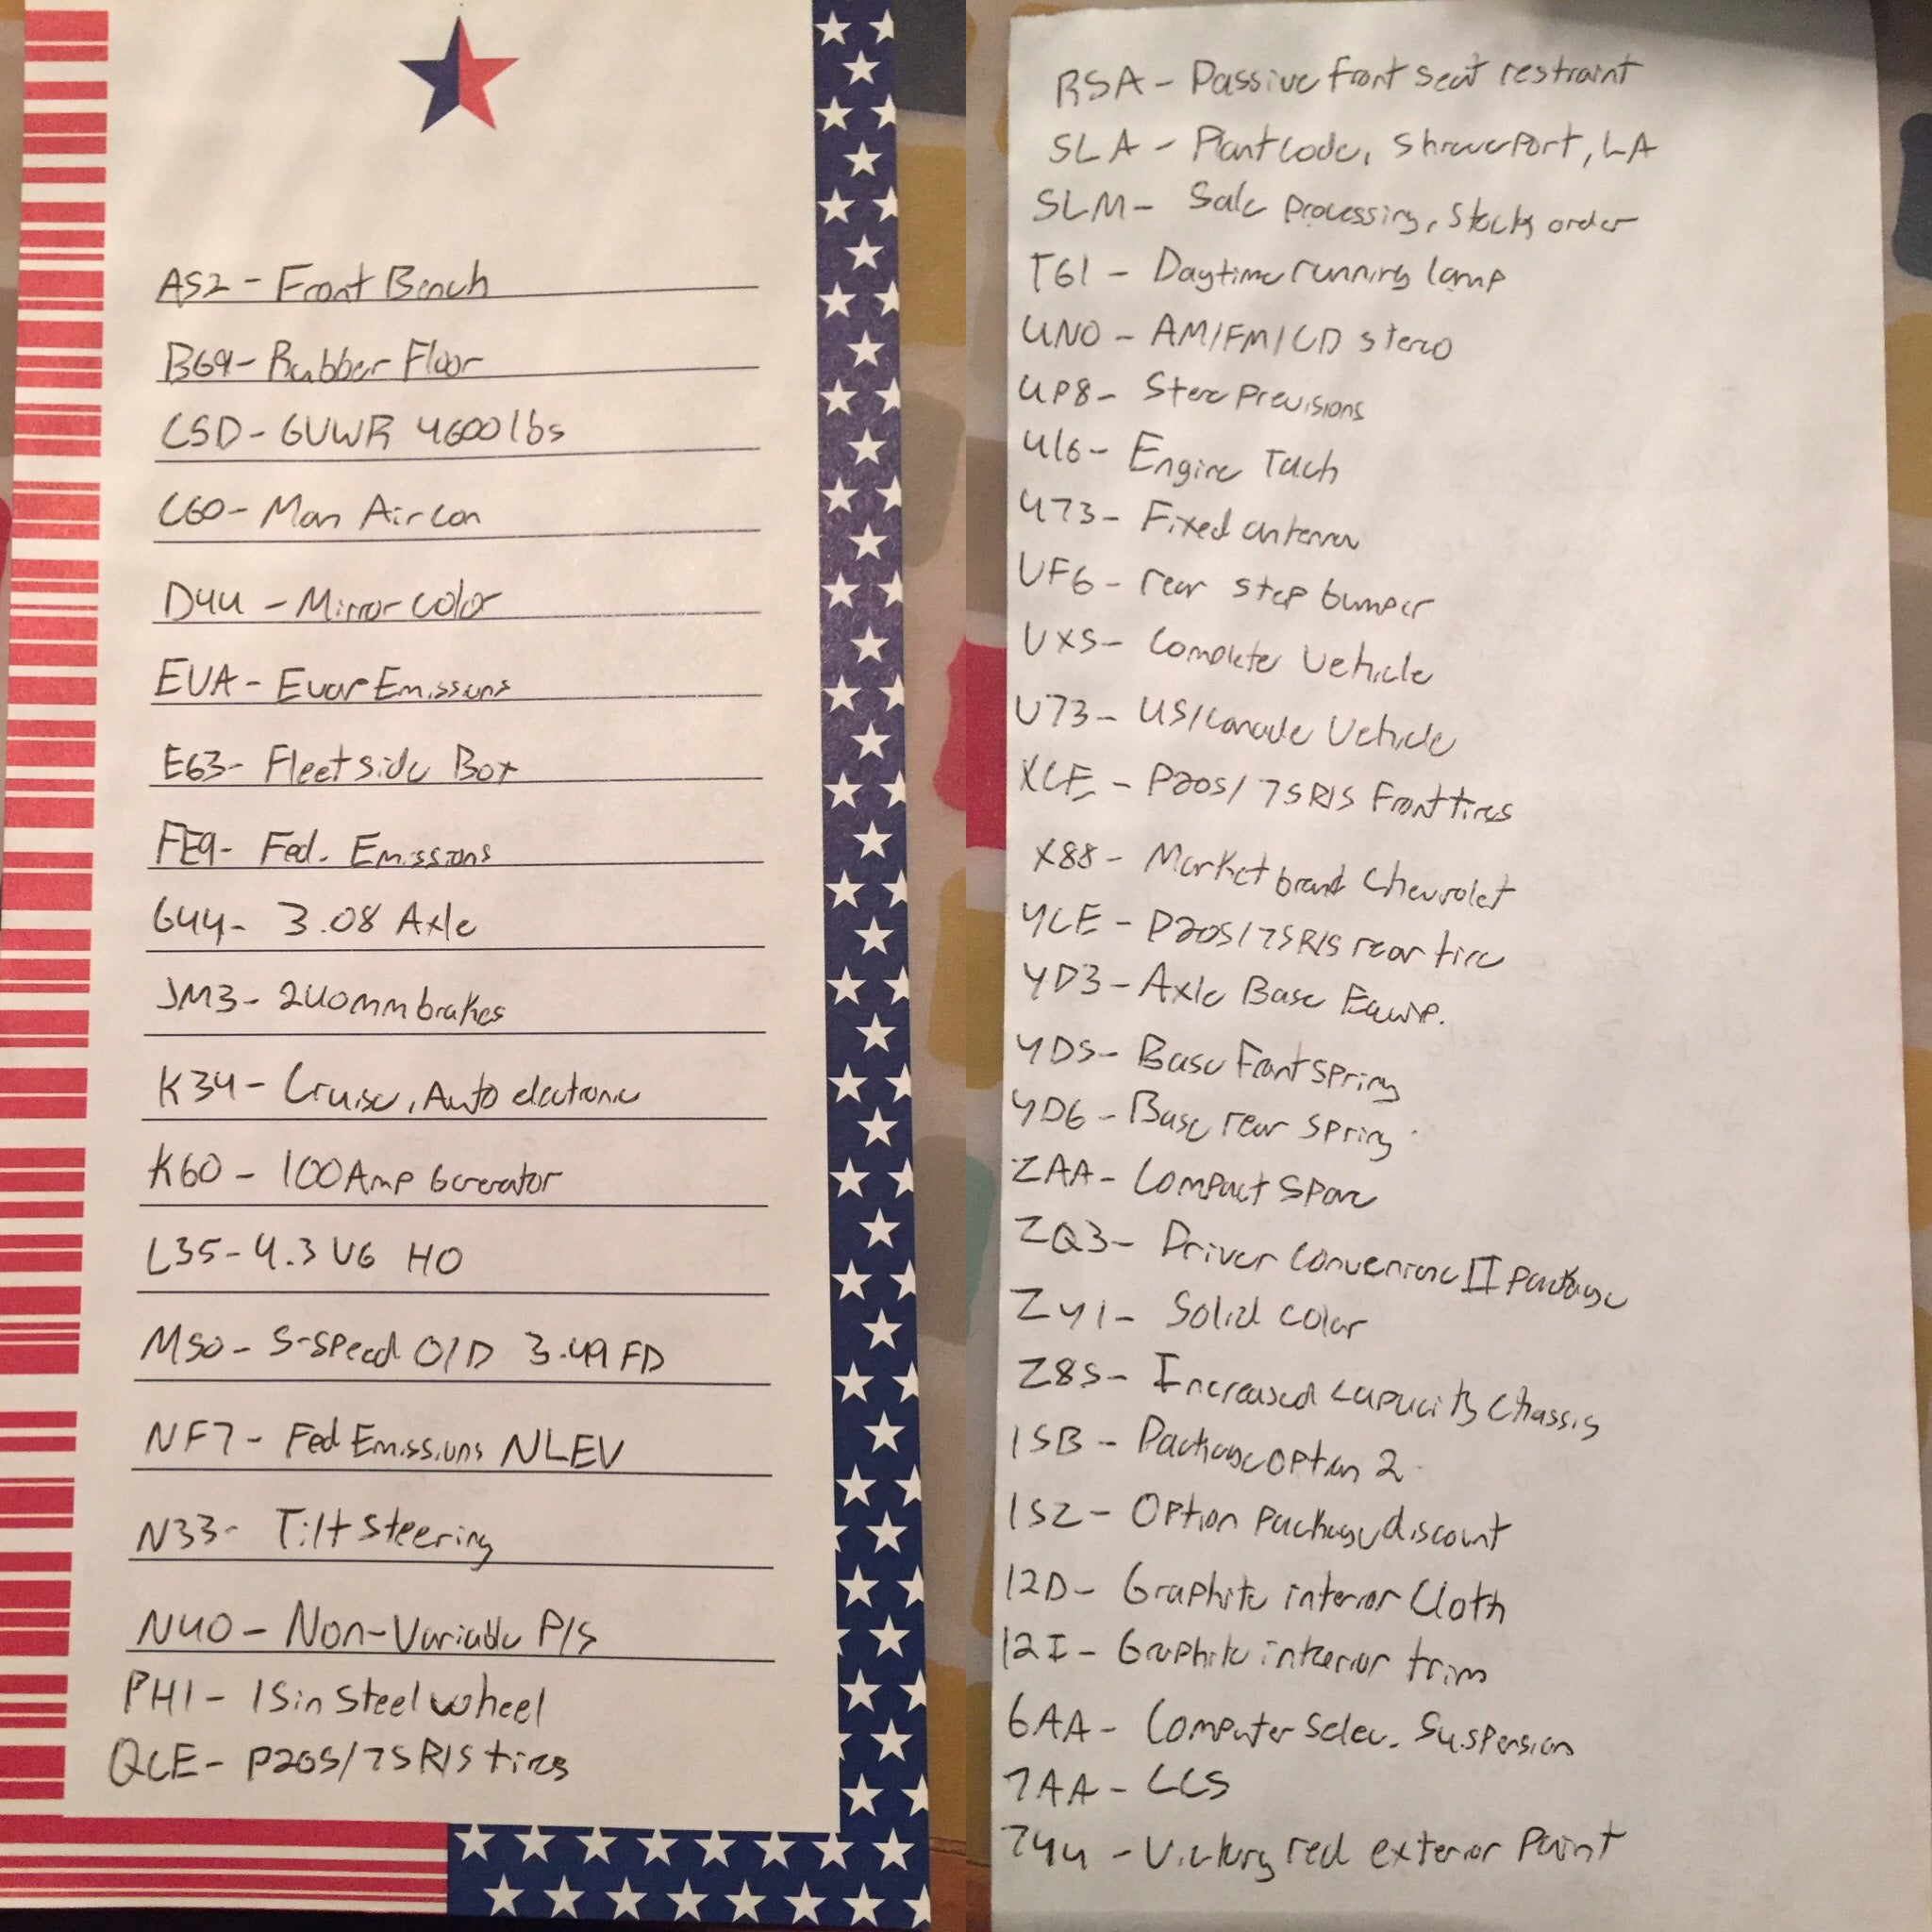 AS2 - Front Bench
B69 - Rubber Floor
C5D - GVWR 4600 lbs
C60 - Man Air Con
D44 - Mirror color
EVA - Evap Emissions
E63 - Fleetside Box
FE9 - Fed. Emissions
GU4 - 3.08 Axle
JM3 - 240mm brakes
K34 - Cruise, Auto electronic
K60 - 100 Amp Generator
L35 - 4.3 V6 HO
M50 - 5-speed O/D 3.49 FD
NF7 - Fed Emissions NLEV
N33 - Tilt steering
N40 - Non-Variable P/S
PH1 - 15in Steel wheel
QCE - P205/75R15 tires
RSA - Passive front seat restraint
SLA - Plant Code, Shreveport, LA
SLM - Sale processing, Stock order
T61 - Daytime running lamp
UN0 - AM/FM/CD stereo
UP8 - Stereo Provisions
U16 - Engine Tach
U73 - Fixed antenna
VF6 - rear step bumper
VXS - Complete Vehicle
V73 - US/Canada Vehicle
XCE - P205/75R15 Front tires
X88 - Market brand Chevrolet
YCE - P205/75R15 rear tire
YD3 - Axle Base Equip.
YD5 - Base Front Spring
YD6 - Base rear spring
ZAA - Compact Spare
ZQ3 - Driver Convenience II package
ZY1 - Solid color
Z85 - Increased capacity Chassis
1SB - Package option 2
1SZ - Option Package discount
12D - Graphite interior Cloth
12I - Graphite interior trim
6AA - Computer Selec. Suspension
7AA - CCS
74U - Victory red exterior paint